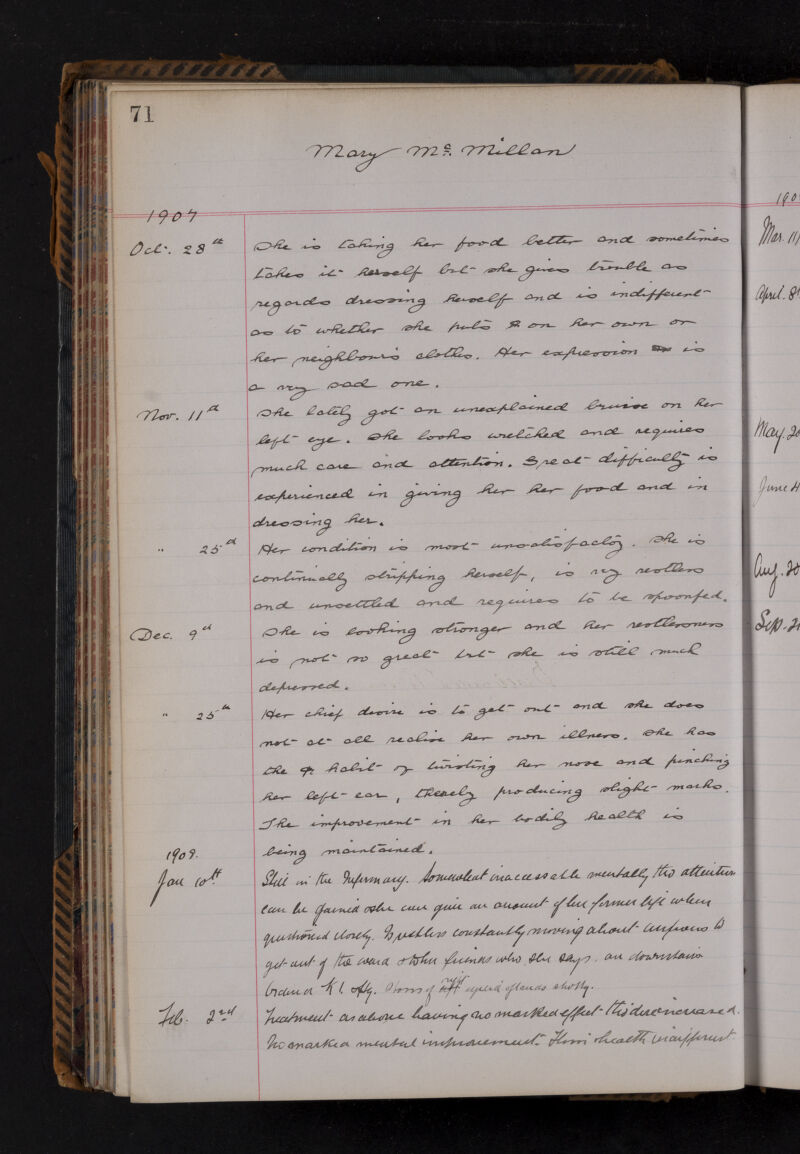 71
Mary Mc. Millan
1907
Oct. 28th She is taking her food better and sometimes
takes it herself but she gives trouble as
regards dressing herself and is indifferent
as to whether she puts on her own or
her neighbour's clothes. Her expression is
a very sad one.
Nov. 11th She lately got an unexplained bruise on her
left eye. She looks wretched and requires
much care and attention. Great difficulty is
experienced in giving her her food and in
dressing her.
" 25th Her condition is most unsatisfactory. She is
continually stripping herself, is very restless
and unsettled and requires to be spoonfed.
Dec. 9th She is looking stronger and her restlessness
is not so great but she is still much
depressed.
" 25th Her chief desire is to get out and she does
not at all realise her own illness. She has
the habit of twisting her nose and pinching
her left ear, thereby producing slight marks.
The improvement in her bodily health is
1908. being maintained.
Jan 10th Still in the Infirmary. Somewhat inaccessable mentally tho attention
can be gained & she can give an account of her former life when
questioned closely. Is restless constantly moving about anxious to
get out of the ward & to her friends who she says are downstairs
glands
Feb. 2nd Treatment as above having no marked effect tho dose increased.
No marked mental improvement. health indifferent.
190
Mar. 11
April. 8
May. 20
June 4
Aug. 20
Sep. 2